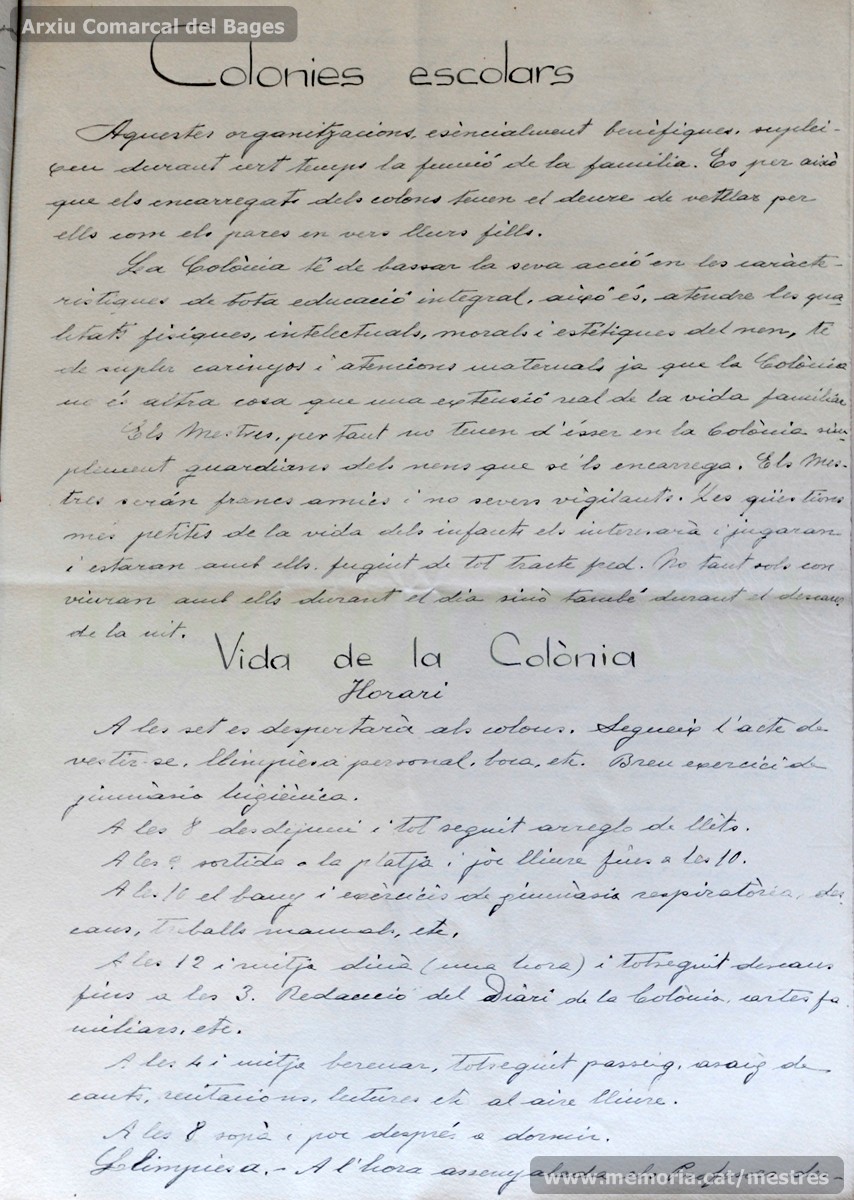 Arxiu Comarcal del Bages
Colonies escolars
Aquestes organitzacions, esèncialment benèfiques, suplei-
xeu durant cert temps la funció de la familia. Es per això
que els encarregats dels colons tenen el deure de vetllar per
ells com els pares en vers llurs fills.
La Colònia té de bassar la seva acció en les caràcte-
ristiques de tota educació integral, això és, atendre les qua
litats fisiques, intelectuals, morals i estétiques del nen, te
de suplir carinyos i atencions maternals ja que la Colònia
no és altra cosa que una extensió real de la vida familiar
Els Mestres, per tant no tenen d'ésser en la Colònia sim
plement guardians dels nens que se'ls encarrega. Els Mes-
tres serán francs amics i no severs vigilants. Les qüestions
més petites de la vida dels infants els interesarà i jugaran
i estaran amb ells, fugint de tot tracte fred. No tant sols con
viuran amb ells durant el dia sinó també durant el descans
de la nit.
Vida de la Colònia
Horari
A les set es despertarà als colons. Segueix l'acte de
vestir-se, llimpiesa personal, boca, etc. Breu exercici de
gimnàsia higiènica.
A les 8 desdijuni i tot seguit arreglo de llits.
A les 9 sortida a la platja i jòc lliure fins a les 10.
A les 10 el bany i exèrcicis de gimnàsia respiratòria, des
cans, treballs manuals, etc.
A les 12 i mitja dinà (una hora) i totseguit descans
fins a les 3. Redacció del Diàri de la Colònia, cartes fa
miliars, etc.
A les 4 i mitja berenar, totseguit passeig, asaig de
cants, recitacions, lectures etc al aire lliure.
A les 8 sopà i poc després a dormir.
Llimpiesa.- A l'hora assenyalada els de-
www.memoria.cat/mestres